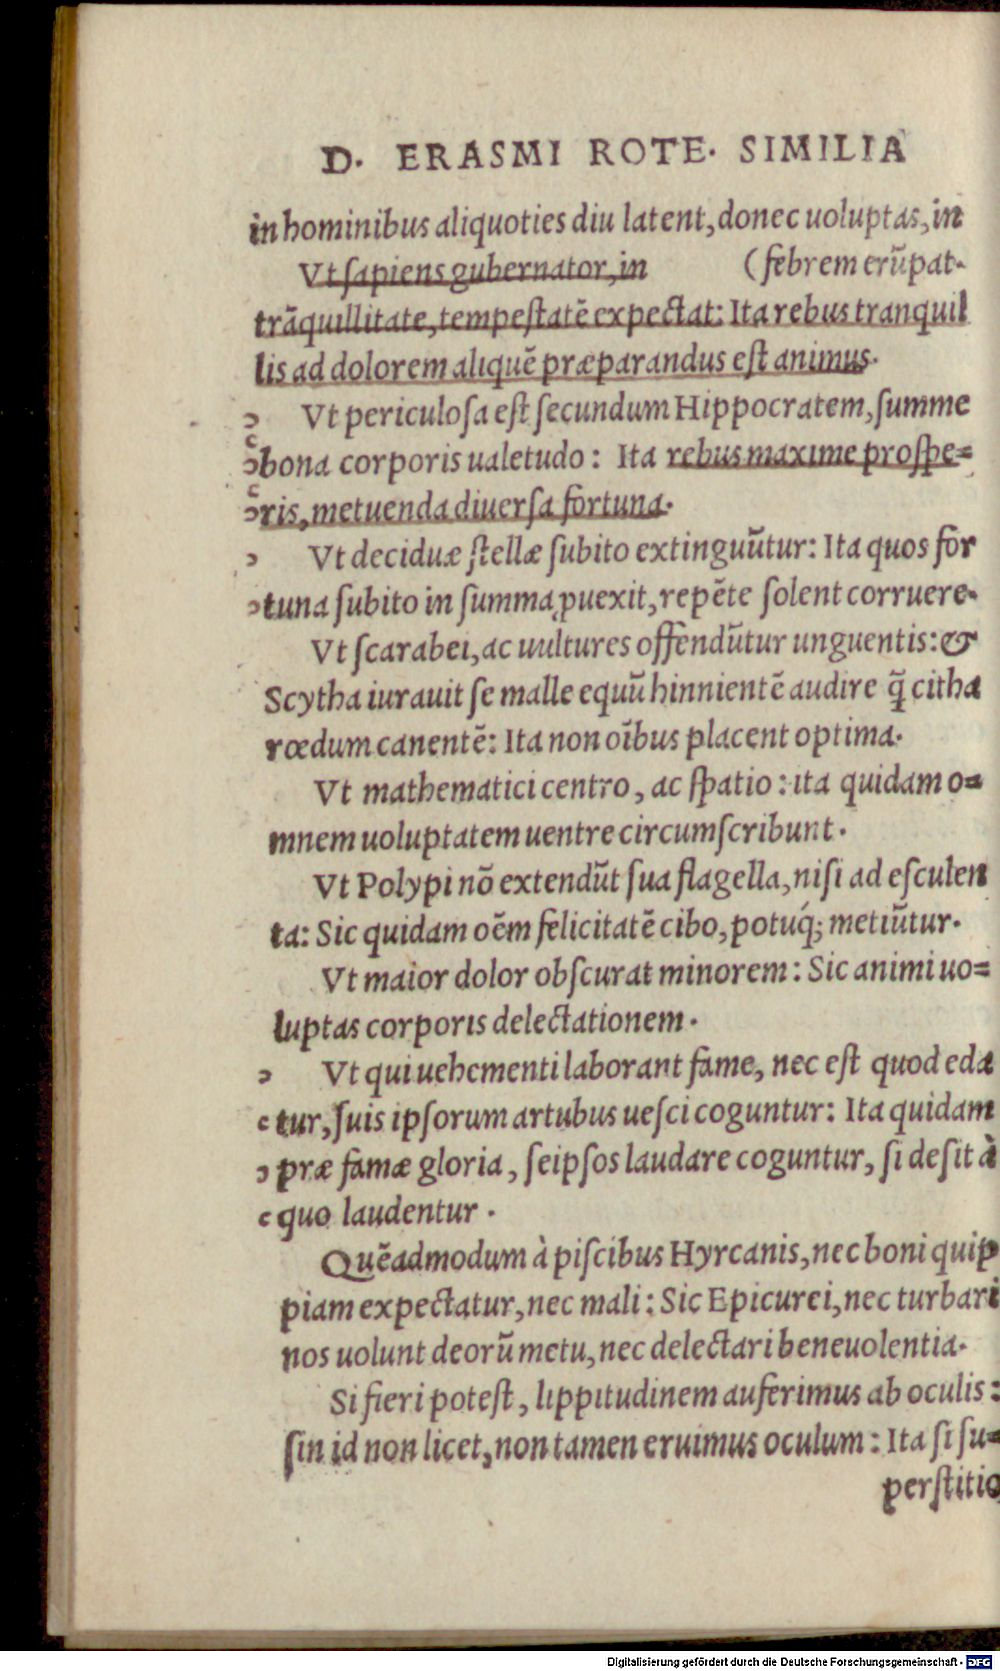 D. ERASMI ROTE. SIMILIA
in hominibus aliquoties diu latent, donec uoluptas, in
Vt sapiens gubernator, in (febrem erūpat.
trāquillitate, tempeſtatē expectat: Ita rebus tranquil
lis ad dolorem aliquē præparandus eſt animus.
Vt periculoſa eſt ſecundum Hippocratem, ſumme
bona corporis ualetudo: Ita rebus maxime proſpe=
ris, metuenda diuerſa fortuna.
Vt deciduæ ſtellæ ſubito extinguūtur: Ita quos for
tuna ſubito in ſumma ꝓuexit, repēte ſolent corruere.
Vt ſcarabei, ac uultures offendūtur unguentis: &
Scytha iurauit ſe malle equū hinnientē audire q̄ citha
rœdum canentē: Ita non oībus placent optima.
Vt mathematici centro, ac ſpatio: ita quidam o=
mnem uoluptatem uentre circumſcribunt.
Vt Polypi nō extendūt ſua flagella, niſi ad eſculen
ta: Sic quidam oēm felicitatē cibo, potuq́; metiūtur.
Vt maior dolor obſcurat minorem: Sic animi uo=
luptas corporis delectationem.
Vt qui uehementi laborant fame, nec eſt quod eda
tur, ſuis ipſorum artubus ueſci coguntur: Ita quidam
præ famæ gloria, ſeipſos laudare coguntur, ſi deſit à
quo laudentur.
Quēadmodum à piſcibus Hyrcanis, nec boni quip
piam expectatur, nec mali: Sic Epicurei, nec turbari
nos uolunt deorū metu, nec delectari beneuolentia.
Si fieri poteſt, lippitudinem auferimus ab oculis:
ſin id non licet, non tamen eruimus oculum: Ita ſi ſu=
perſtitio
Digitalisierung gefördert durch die Deutsche Forschungsgemeinschaft - DFG